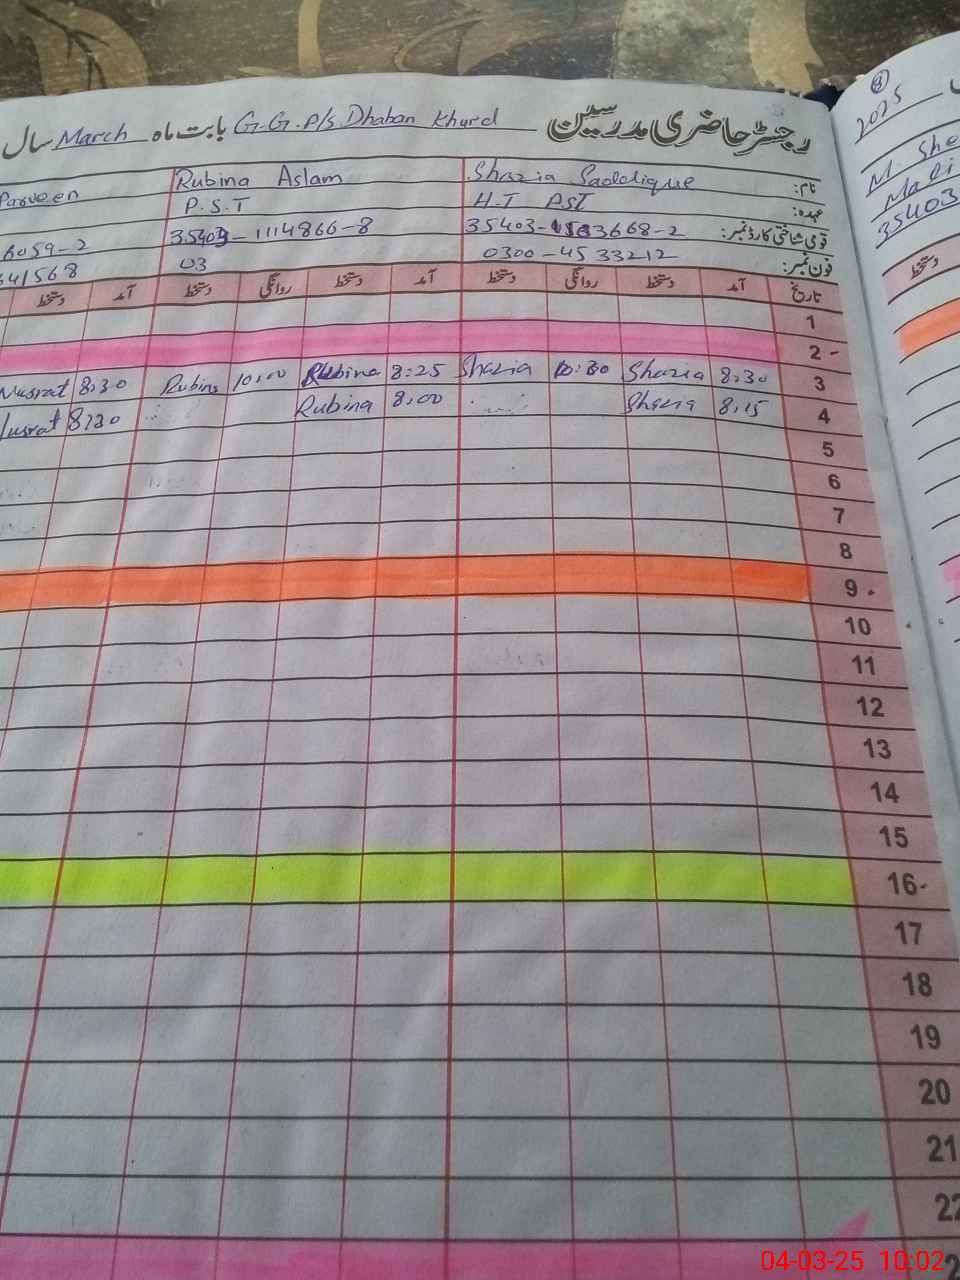 رجسٹر حاضری مدرسین G.G.P/S Dhaban Khurd بابت ماه March سال
نام: Shazia Saddique Rubina Aslam Parveen
عہدہ: H.T PST P.S.T
قومی شناختی کارڈ نمبر: 35403- 3668-2 35403-1114866-8 6059-2
فون نمبر: 0300-4533212 03 41568
تاریخ آمد دستخط روانگی دستخط آمد دستخط روانگی دستخط آمد دستخط
1
2
3 8:30 Shazia 10:30 Shazia 8:25 Rubina 10:00 Rubina 8:30 Nusrat
4 8:15 Shazia 8:00 Rubina 8:30 Nusrat
5
6
7
8
9
10
11
12
13
14
15
16
17
18
19
20
21
22
2025
M.
35403
دستخط
04-03-25 10:02